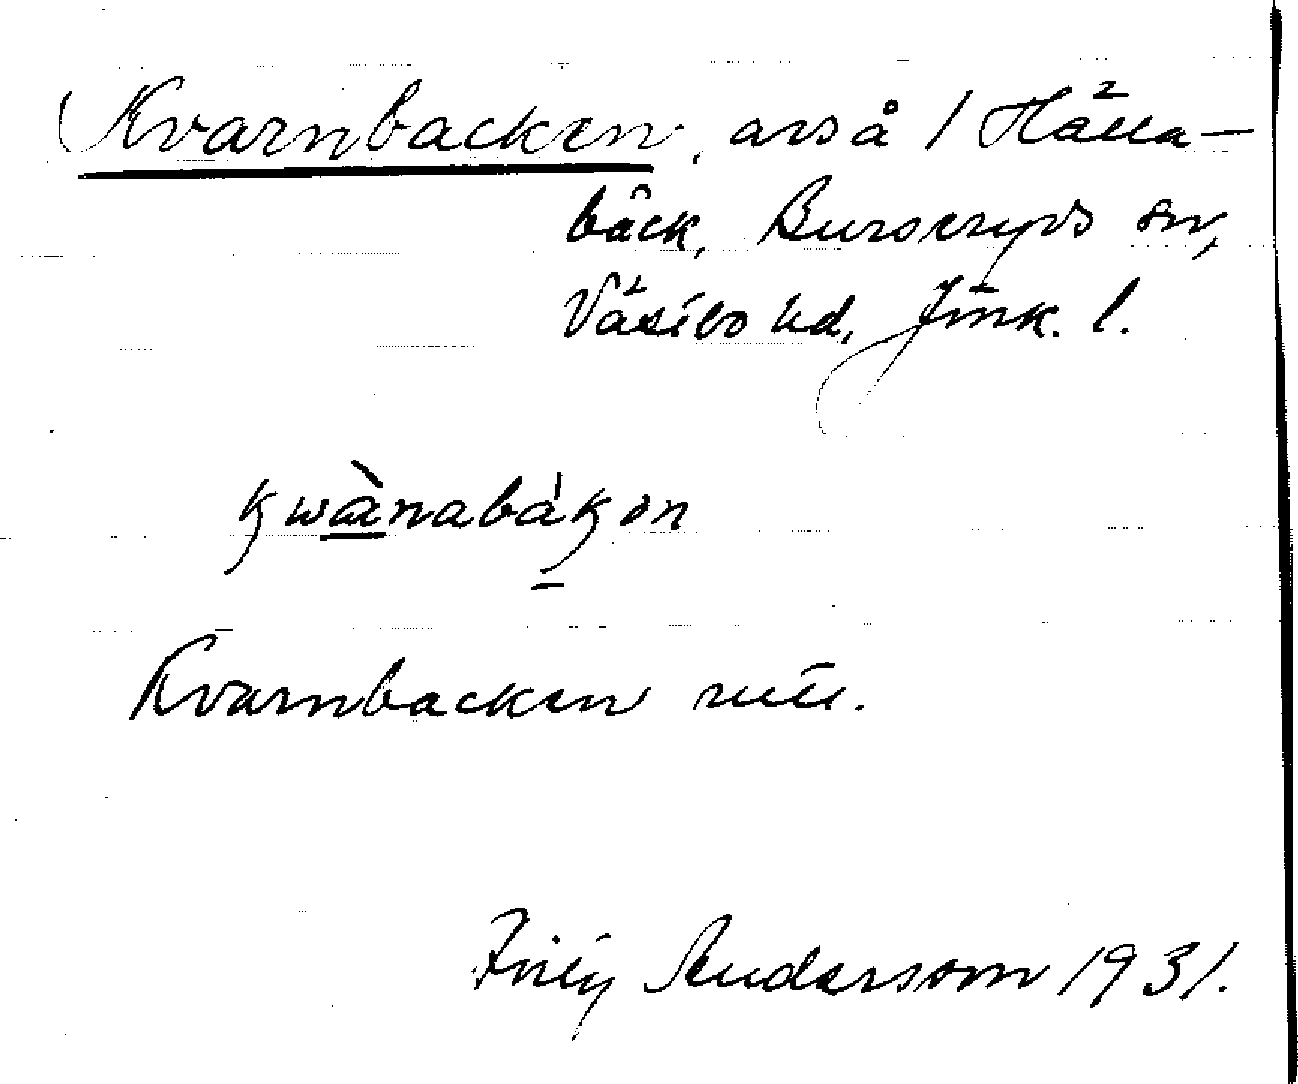 Kvarnbacken, avs å / Hälla-
bäck, Burseryds sn,
Västbo hd, Jönk. l.
kwànabákən
Kvarnbacken
Andersson 1931.